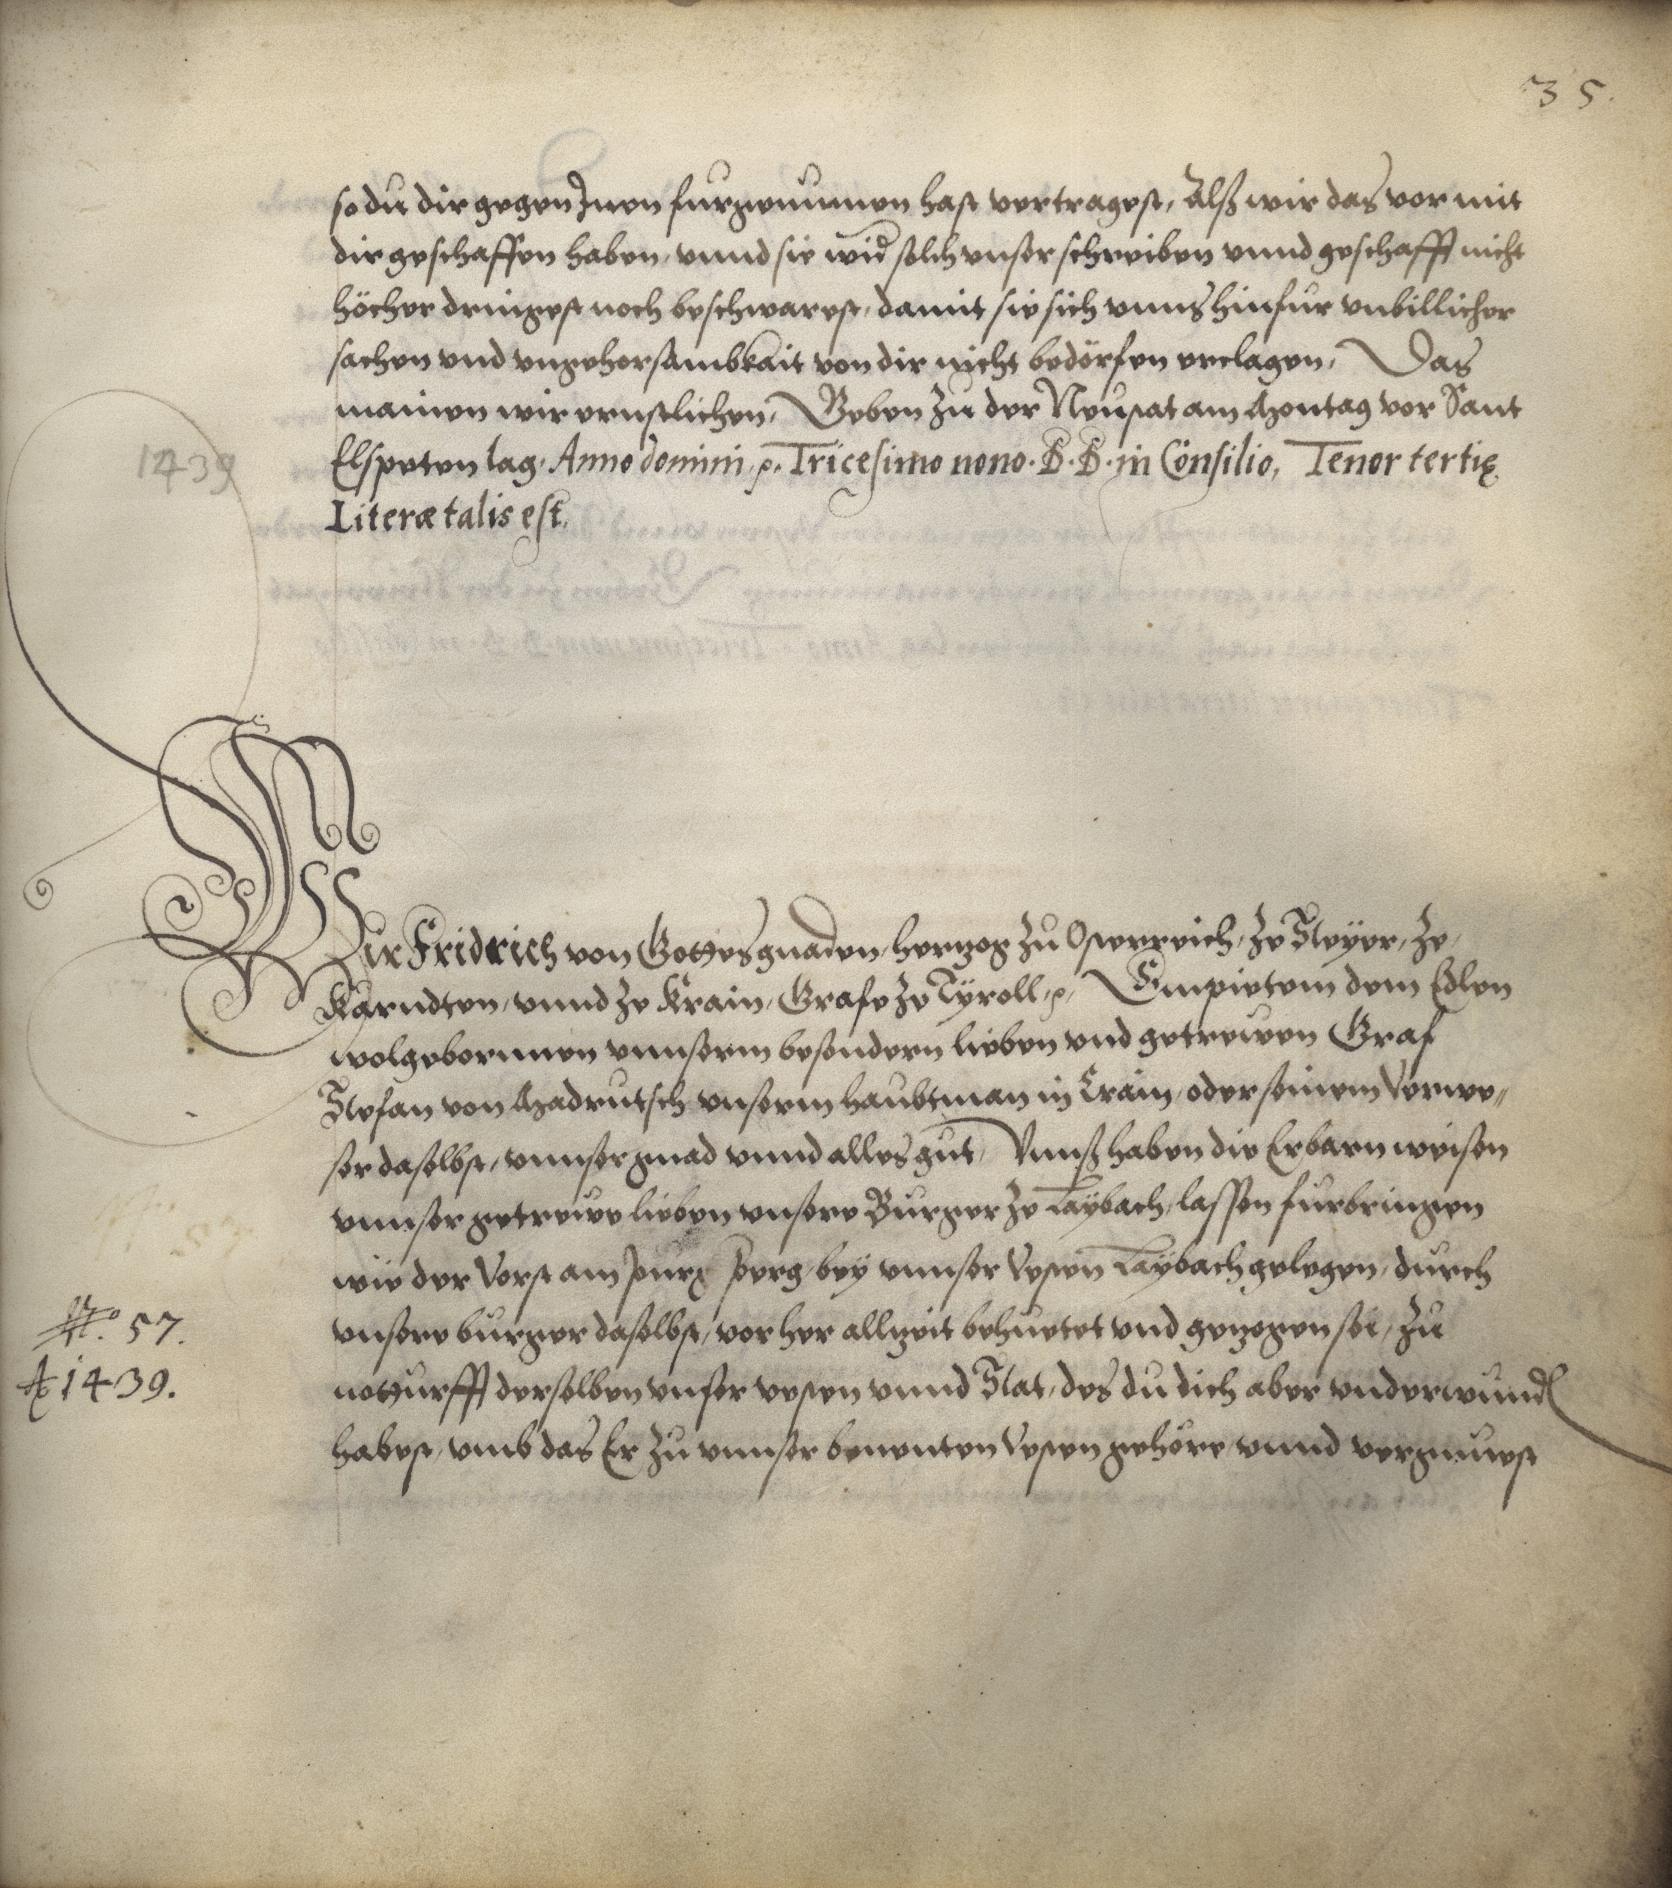 35.
so du dir gegen Inen furgenumen hast vertragest, Alß wir das vor mit
dir geschaffen haben, vnnd sie wid solch vnser schreiben vnnd geschafft nicht
höcher dringest noch beschwarest, damit sie sich vnns hinfur vnbillicher
sachen vnd vngehorsambkait von dir nicht bedörfen erclagen, Das
mainen wir ernstlichen, Geben Zu der Neustat am Montag vor Sant
1439
Elspeten tag. Anno domini .p. Tricesimo nono. D. D. in Consilio, Tenor tertię
Literæ talis est.
Wir Fridrich von Gottes gnaden, hertzog zu Osterreich, Ze Steyer, Ze
Kärndten, vnnd Ze Krain, Grafe Ze Tÿroll, p, Empietem dem Edlen
wolgebornnen vnnserm besondern lieben vnd getrewen Graf
Stefan von Madrutsch vnserm haubtman in Crain, oder seinem Verwe„
ser daselbst, vnnser gnad vnnd alles gut, Vnnß haben die Erbarn weisen
vnnser getrewe lieben vnsere Burger Ze Laÿbach, lassen furbringen
wie der Vorst am purg perg, beÿ vnnser Vesten Laÿbach gelegen, durch
No. 57.
vnsere burger daselbst, vorher allzeit behuetet vnd gezogen sei, Zu
A 1439.
notturfft derselben vnser vesten vnnd Stat, des du dich aber vnderwund
habest, vmb das Er Zu vnnser benenten Vesten gehöre, vnnd vergnuest